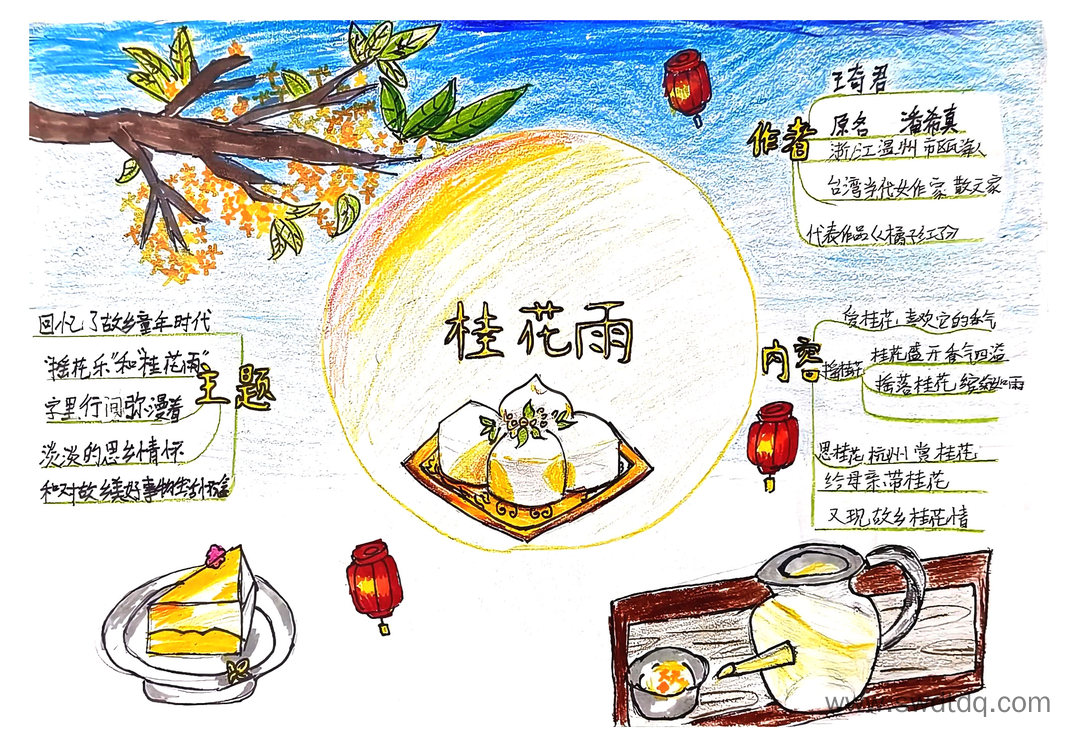 桂花雨
作者
王奇君
原名 潘希真
浙江温州市瓯海人
台湾当代女作家 散文家
代表作品《橘子红了》
主题
回忆了故乡童年时代
"摇花乐"和"桂花雨"
字里行间弥漫着
淡淡的思乡情怀
和对故乡美好事物
内容
爱桂花 喜欢它的香气
摇桂花
桂花盛开香气四溢
摇落桂花 缤纷如雨
思桂花 杭州赏桂花
给母亲带桂花
又现故乡桂花情
www.swdtdq.com